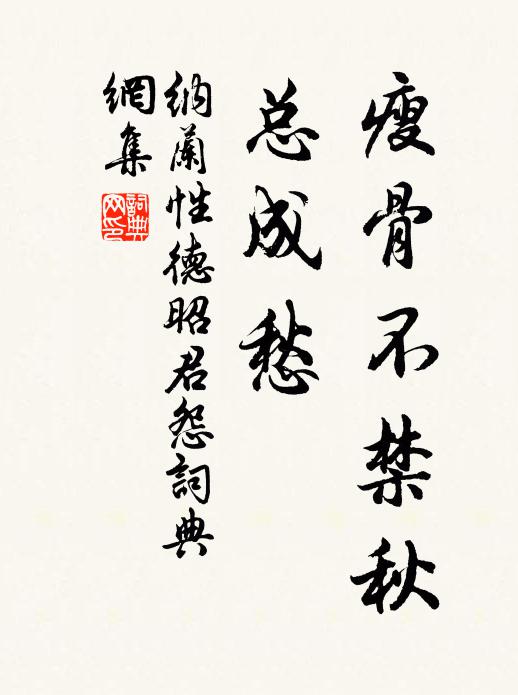 瘦骨不禁秋
总成愁
纳兰性德昭君怨詞典
網集
詞典网印